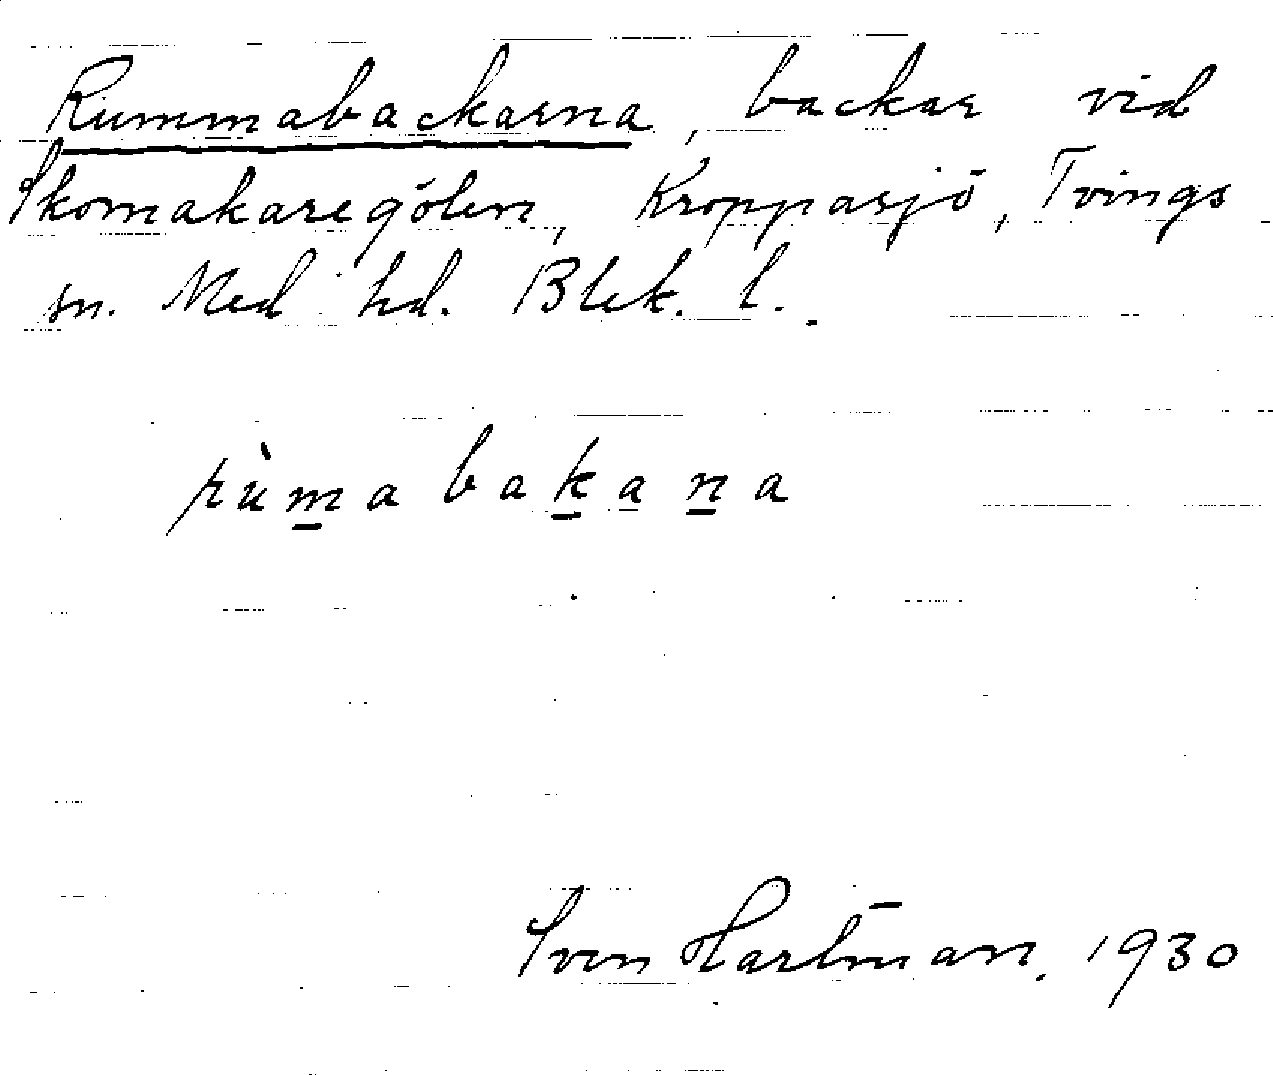 Rummabackarna, backar vid
Skomakaregölen, Kroppasjö, Tvings
sn. Med hd. Blek. l.
rùm̲abak̲a̲n̲a
Sven Hartm̄an. 1930